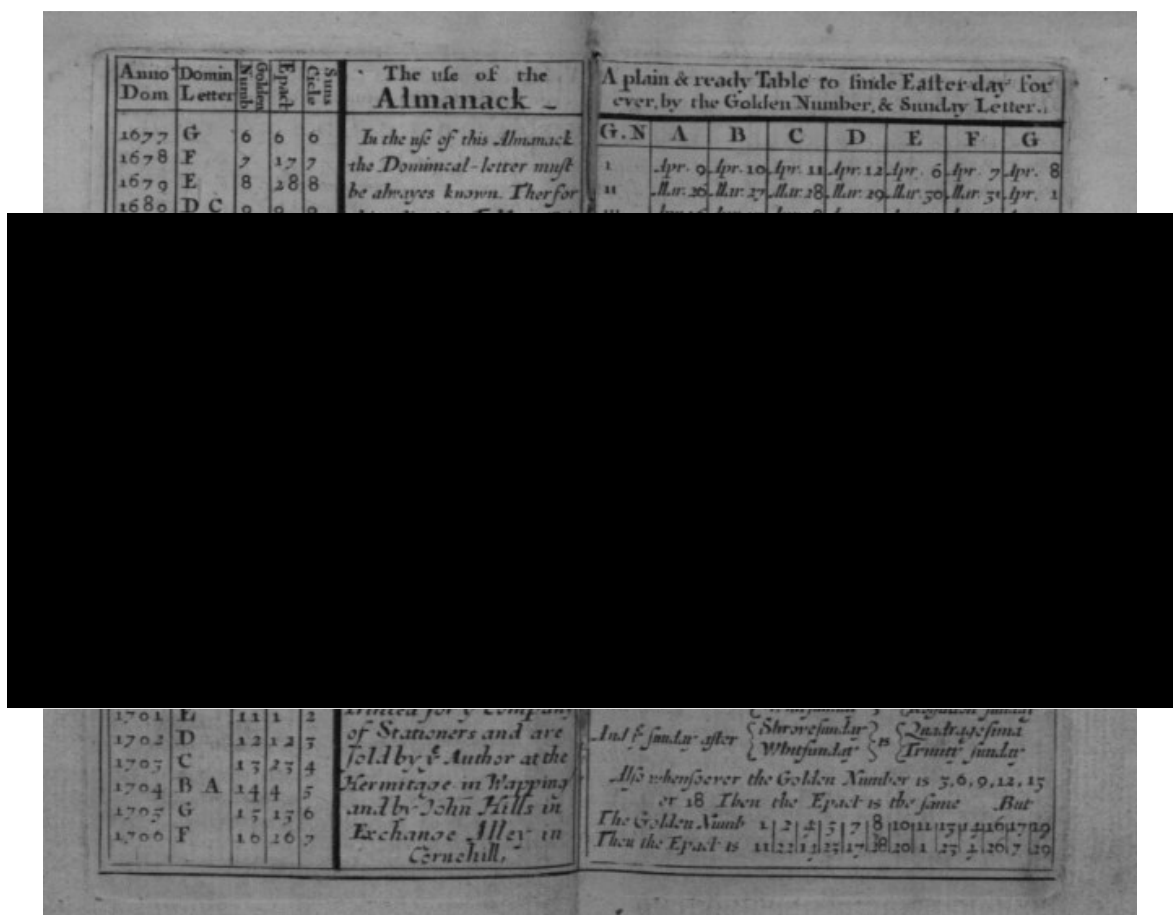 Anno Dom | Domin Letter | Golden Numb | Epact | Suns Cicle
1677 G 6 6 6
1678 F 7 17 7
1679 E 8 28 8
1680 D C 9 9 9
1701 E 11 1 2
1702 D 12 12 3
1703 C 13 23 4
1704 B A 14 4 5
1705 G 15 15 6
1706 F 16 26 7
The use of the
Almanack
In the use of this Almanack
the Dominical-letter must
be alwayes known. Therfor
Printed for ye Company
of Stationers and are
sold by ye Author at the
Hermitage in Wapping
and by John Hills in
Exchange Alley in
Cornehill,
A plain & ready Table to finde Easter day for
ever, by the Golden Number, & Sunday Letter.
G.N A B C D E F G
I Apr. 9 Apr. 10 Apr. 11 Apr. 12 Apr. 6 Apr. 7 Apr. 8
II Mar. 26 Mar. 27 Mar. 28 Mar. 29 Mar. 30 Mar. 31 Apr. 1
And ye sunday after {Shrovesunday Whitsunday} is {Quadragesima Trinity sunday
Also whensoever the Golden Number is 3, 6, 9, 12, 15
or 18 Then the Epact is the same But
The Golden Numb 1 2 4 5 7 8 10 11 13 14 16 17 19
Then the Epact is 11 22 14 25 17 28 20 1 23 4 26 7 29